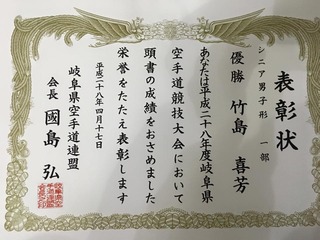 表彰状
シニア男子形 一部
優勝 竹島 喜芳
あなたは平成二十八年度岐阜県
空手道競技大会において
頭書の成績をおさめました
栄誉をたたえ表彰します
平成二十八年四月十七日
岐阜県空手道連盟
会長 國島 弘